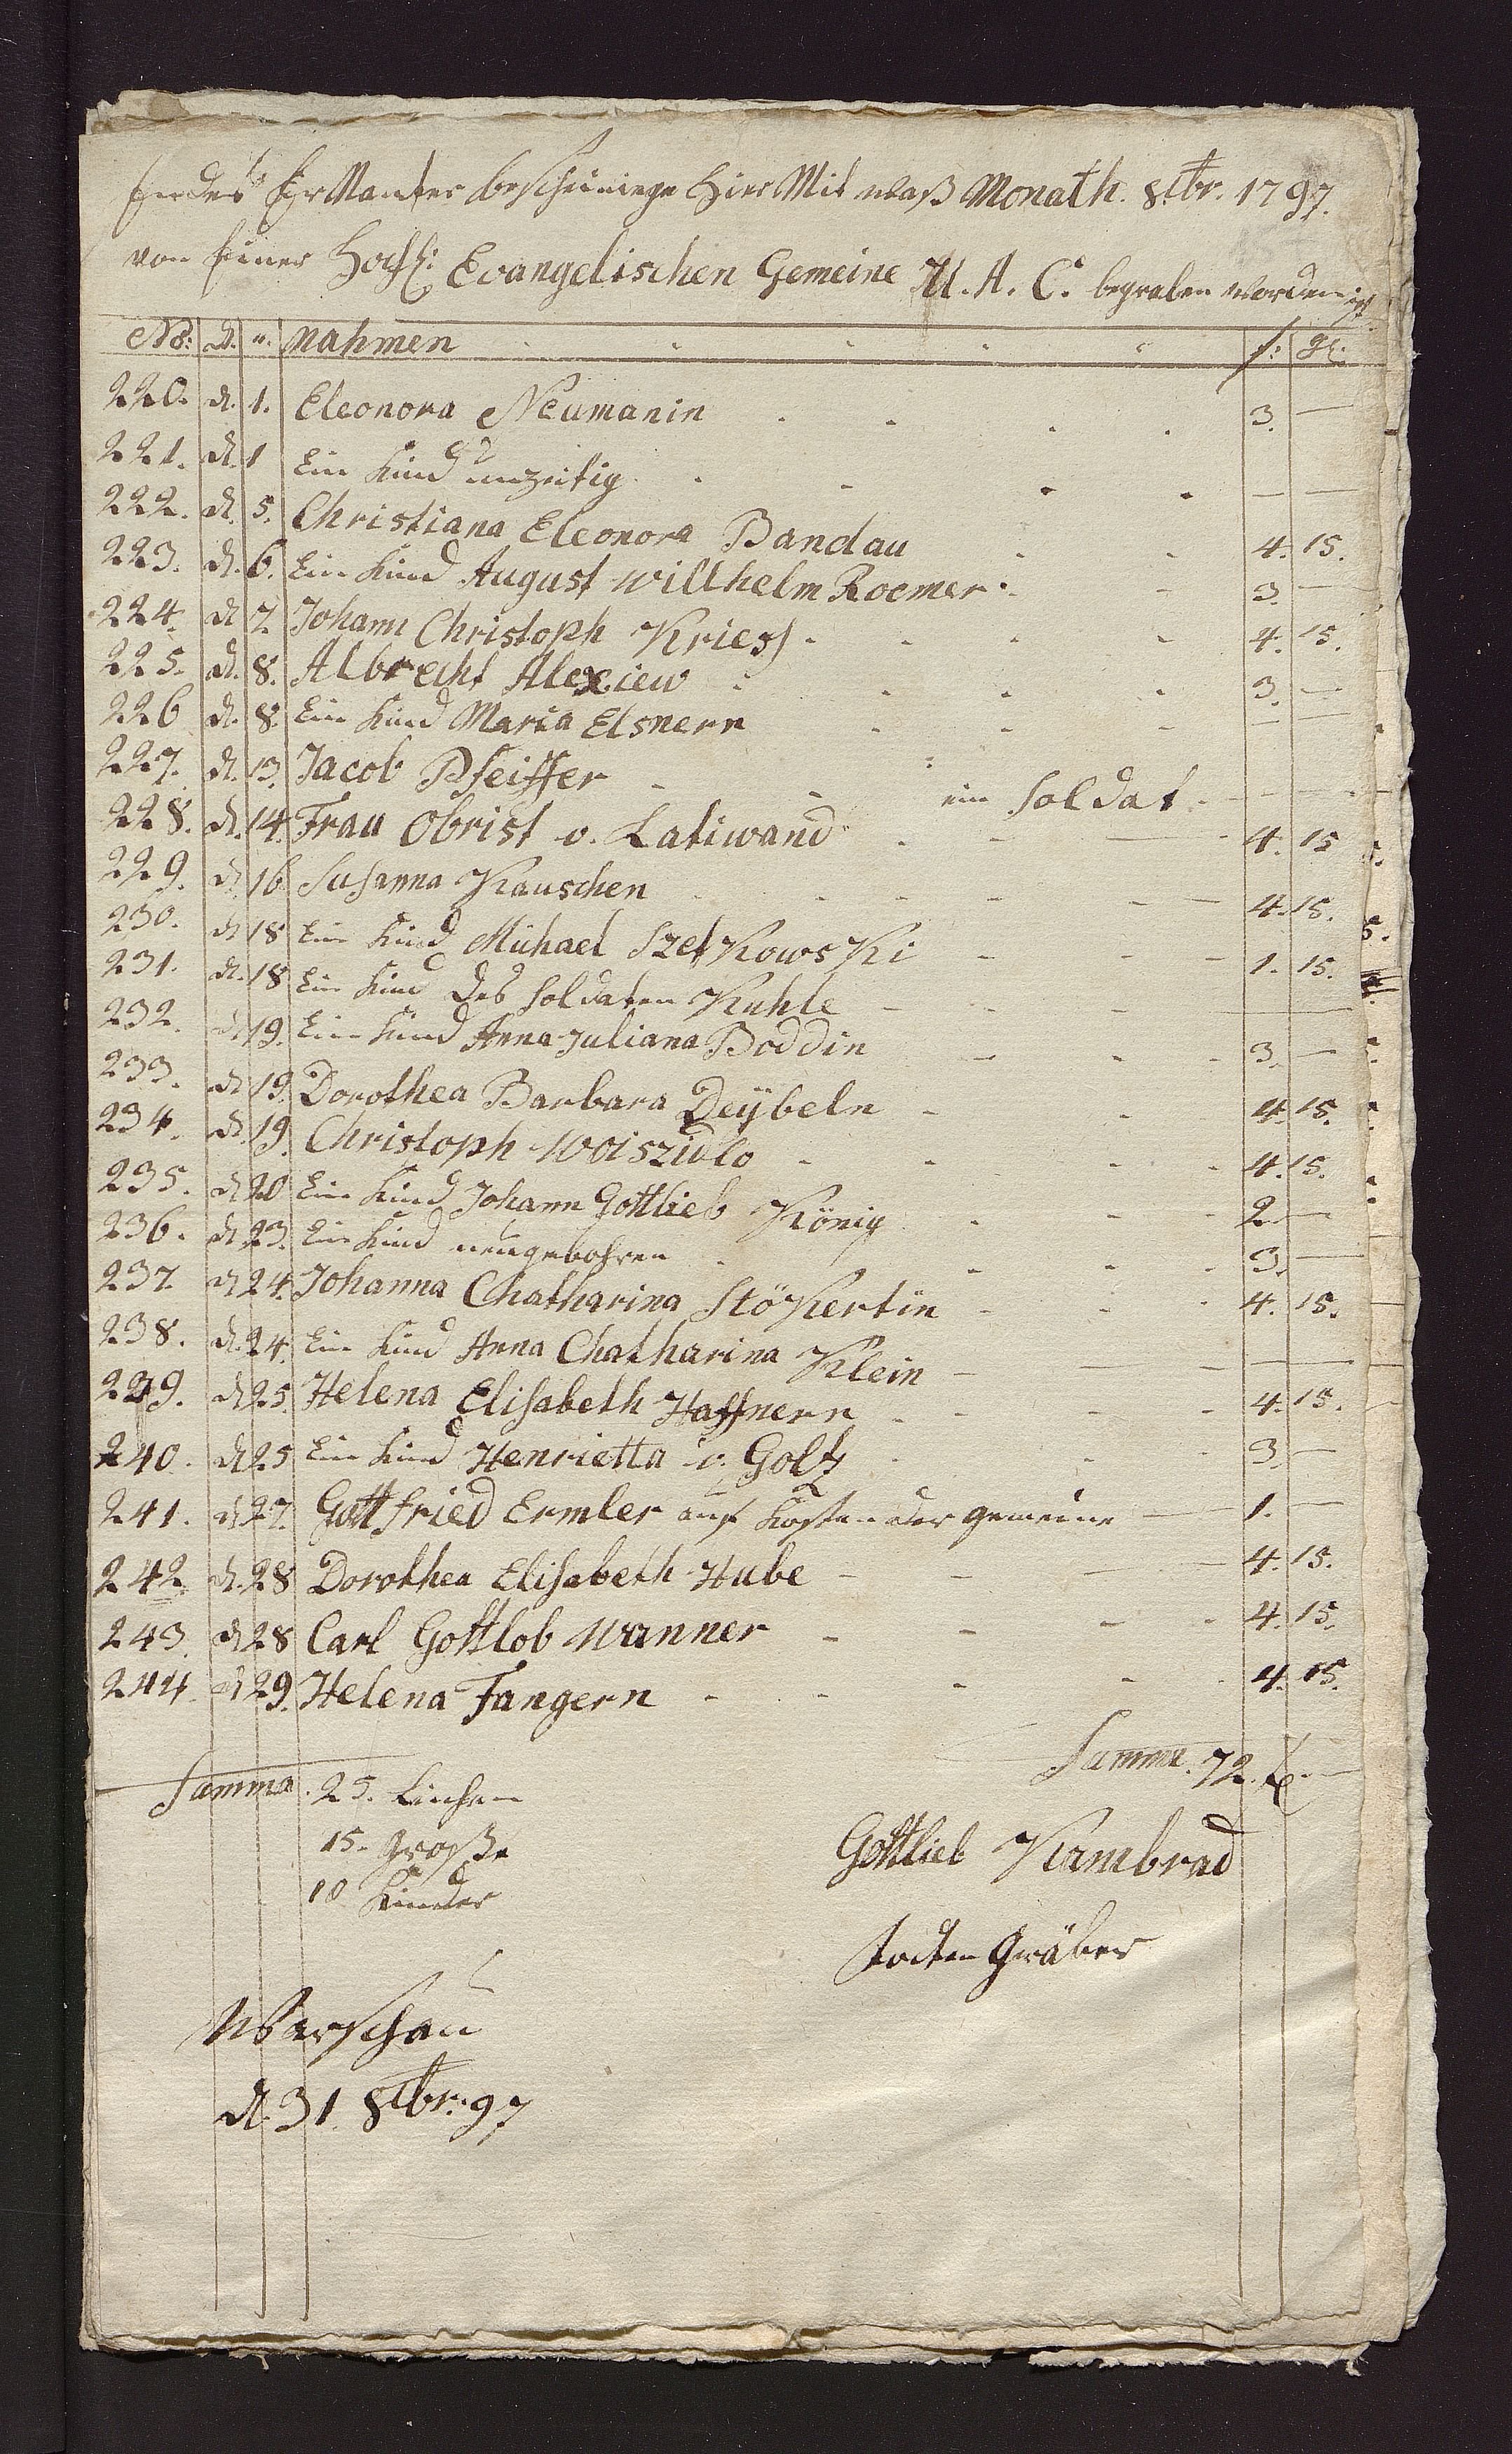 Endes Ermanter bescheiniege hier Mit waß Monath. 8tbr. 1797.
von Einer Hochl: Evangelischen Gemeine U. A. C. begraben worden ist
No: D. u. Nahmen f: gl:
220. d. 1. Eleonora Neumanin 3. —
221. d. 1 Ein Kind unzeitig — —
222. d. 5. Christiana Eleonora Bandau 4. 15.
223. d. 6. Ein Kind August Willhelm Roemer 3. —
224. d. 7. Johann Christoph Kriess 4. 15.
225. d. 8. Albrecht Alexiew 3. —
226 d. 8. Ein Kind Maria Elsnern — —
227. d. 13. Jacob Pfeiffer ein Soldat — —
228. d. 14. Frau Obrist v. Latiwand 4. 15
229. d. 16 Susanna Kauschen 4. 15.
230. d. 18 Ein Kind Michael SzetKowsKi 1. 15.
231. d. 18 Ein Kind des Soldaten Kuhle — —
232. d. 19. Ein Kind Anna Juliana Boddin 3. —
233. d. 19. Dorothea Barbara Deÿbeln 4. 15.
234. d. 19. Christoph Woiszidlo 4. 15.
235. d. 20 Ein Kind Johann Gottlieb König 2 —
236. d. 23. Ein Kind neugebohren 3. —
237. d. 24. Johanna Chatharina StöKertin 4. 15.
238. d. 24. Ein Kind Anna Chatharina Klein — —
239. d. 25. Helena Elisabeth Haffnern 4. 15.
240. d. 25 Ein Kind Henrietta v. Goltz 3. —
241. d. 27. Gottfried Ermler auf Kosten der gemeine 1. —
242. d. 28 Dorothea Elisabeth Hube 4. 15.
243. d. 28 Carl Gottlob Wanner 4. 15.
244. d. 29. Helena Fangern 4. 15.
Summa. 72. f. —
Summa. 25. Leichen
15. Große
10 Kinder
Gottlieb Kambrad
todten Gräber
Warschau
d. 31. 8tbr: 97